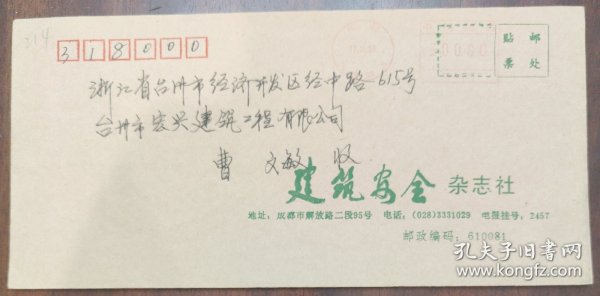 314
318000
贴邮
票处
浙江省台州市经济开发区经中路615号
台州市宏兴建筑工程有限公司
曹文敏 收
建筑安全 杂志社
地址：成都市解放路二段95号 电话：(028)3331029 电报挂号：2457
邮政编码：610081
孔夫子旧书网
www.kongfz.com